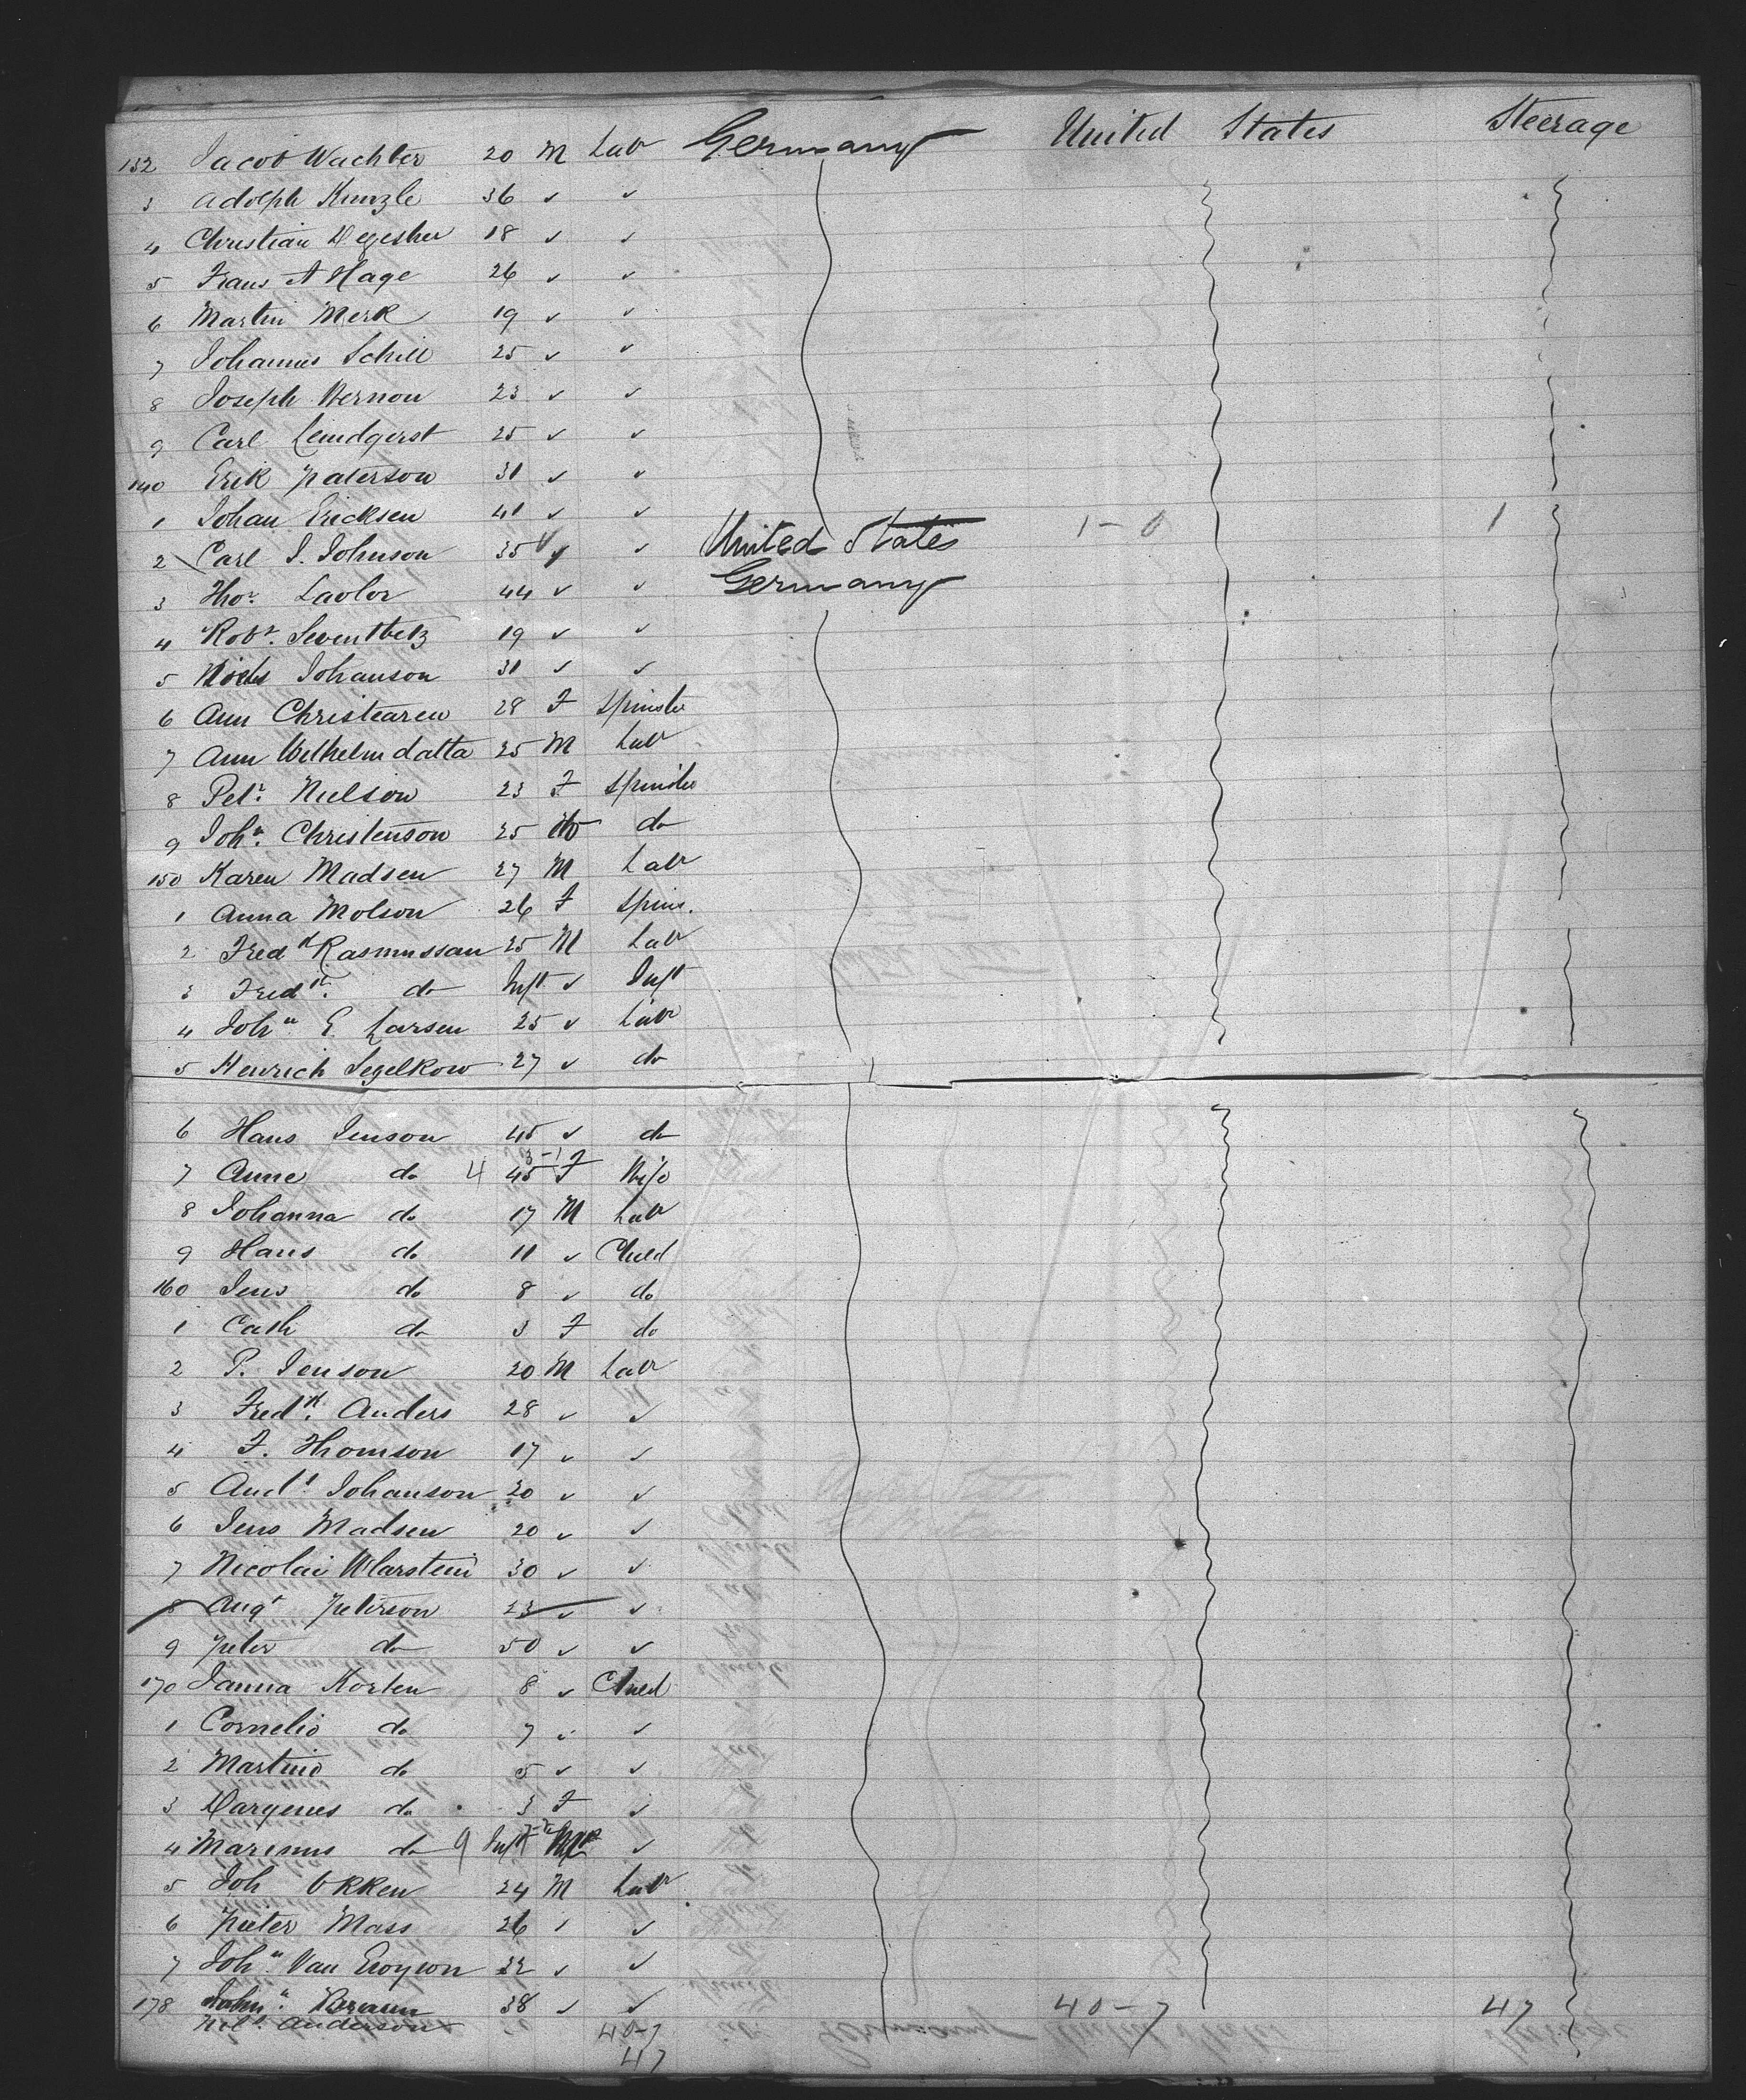 132 Jacob Wachter 20 M Labr Germany United States Steerage
3 Adolph Kunzle 36 ✓ ✓
4 Christian Degesher 18 ✓ ✓
5 Frans A Hage 26 ✓ ✓
6 Martin Merk 19 ✓ ✓
7 Johannes Schill 25 ✓ ✓
8 Joseph Vernou 23 ✓ ✓
9 Carl Lendgerst 25 ✓ ✓
140 Erik Paterson 31 ✓ ✓
1 Johan Ericksen 41 ✓ ✓
2 Carl J. Johnson 35 ✓ ✓ United States 1-0 1
3 Thos. Lawlor 44 ✓ ✓ Germany
4 Robt. Seventbetz 19 ✓ ✓
5 Niels Johanson 31 ✓ ✓
6 Ann Christearen 28 F Spinster
7 Ann Wilhelm datta 25 M Labr
8 Petr. Nielson 23 F Spinster
9 John. Christenson 25 do do
150 Karen Madsen 27 M Labr
1 Anna Molson 26 F Spins.
2 Fredk Rasmussan 25 M Labr
3 Fredk. do Inft ✓ Inft
4 John E. Larsen 25 ✓ Labr
5 Henrich Segelkow 27 ✓ do
6 Hans Jenson 45 ✓ do
3-1
7 Anne do 4 45 F Wife
8 Johanna do 17 M Labr
9 Hans do 11 ✓ Child
160 Jens do 8 ✓ do
1 Cath do 3 F do
2 P. Jenson 20 M Labr
3 Fredk. Anders 28 ✓ ✓
4 F. Thomson 17 ✓ ✓
5 Andr. Johanson 20 ✓ ✓
6 Jens Madsen 20 ✓ ✓
7 Nicolai Warstein 30 ✓ ✓
8 Augt Peterson 23 ✓ ✓
9 Peter do 50 ✓ ✓
170 Janna Korten 8 ✓ Child
1 Cornelio do 7 ✓ ✓
2 Martino do 5 ✓ ✓
3 Dargenes do 3 F ✓
4 Marinus do 9 Inft ✓
5 Joh Okken 24 M Labr
6 Pieter Mass 26 ✓ ✓
7 John Van Eroyson 22 ✓ ✓
178 John. Braun 38 ✓ ✓ 40-7 47
Nels. Anderson 40-7
47